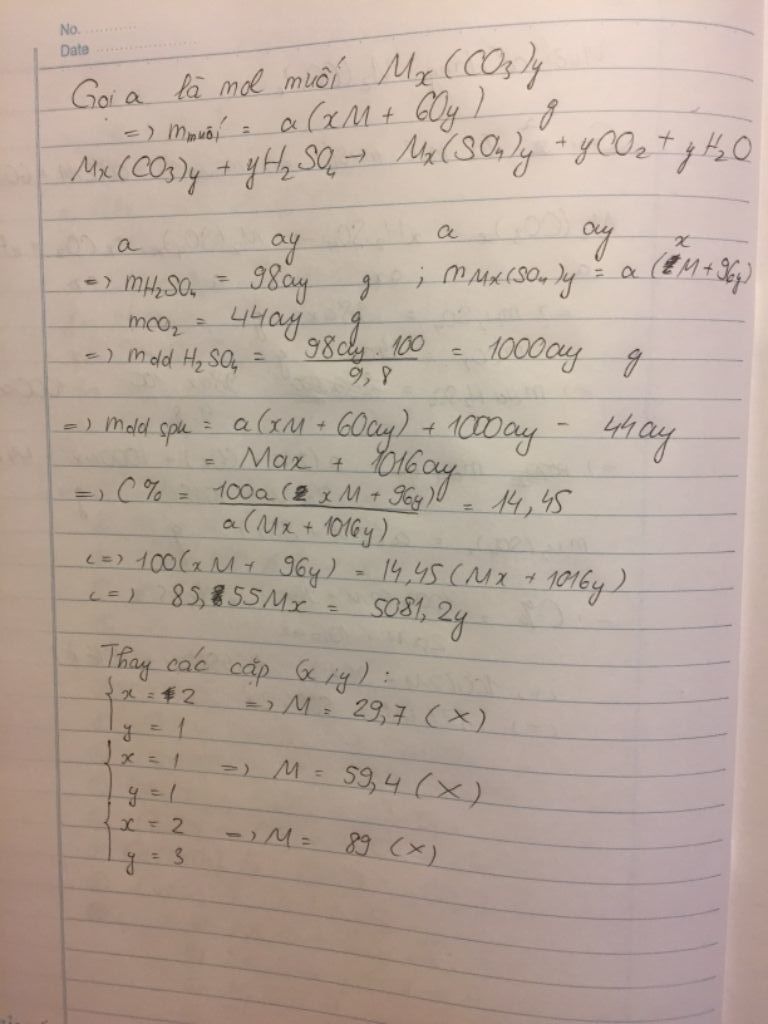 No. ............
Date ............
Gọi a là mol muối Mx(CO3)y
=) mmuối = a(xM + 60y) g
Mx(CO3)y + yH2SO4 → Mx(SO4)y + yCO2 + yH2O
a ay a ay
=) mH2SO4 = 98ay g ; mMx(SO4)y = a (xM + 96y)
mCO2 = 44ay g
=) mdd H2SO4 = 98ay . 100 / 9,8 = 1000ay g
=) mdd spu = a(xM + 60ay) + 1000ay - 44ay
= Max + 1016ay
=) C% = 100a (xM + 96y) / a(Mx + 1016y) = 14,45
<=) 100(xM + 96y) = 14,45 (Mx + 1016y)
<=) 85,55Mx = 5081,2y
Thay các cặp (x ; y) :
{ x = 2 =) M = 29,7 (X)
y = 1
{ x = 1 =) M = 59,4 (X)
y = 1
{ x = 2 =) M = 89 (X)
y = 3